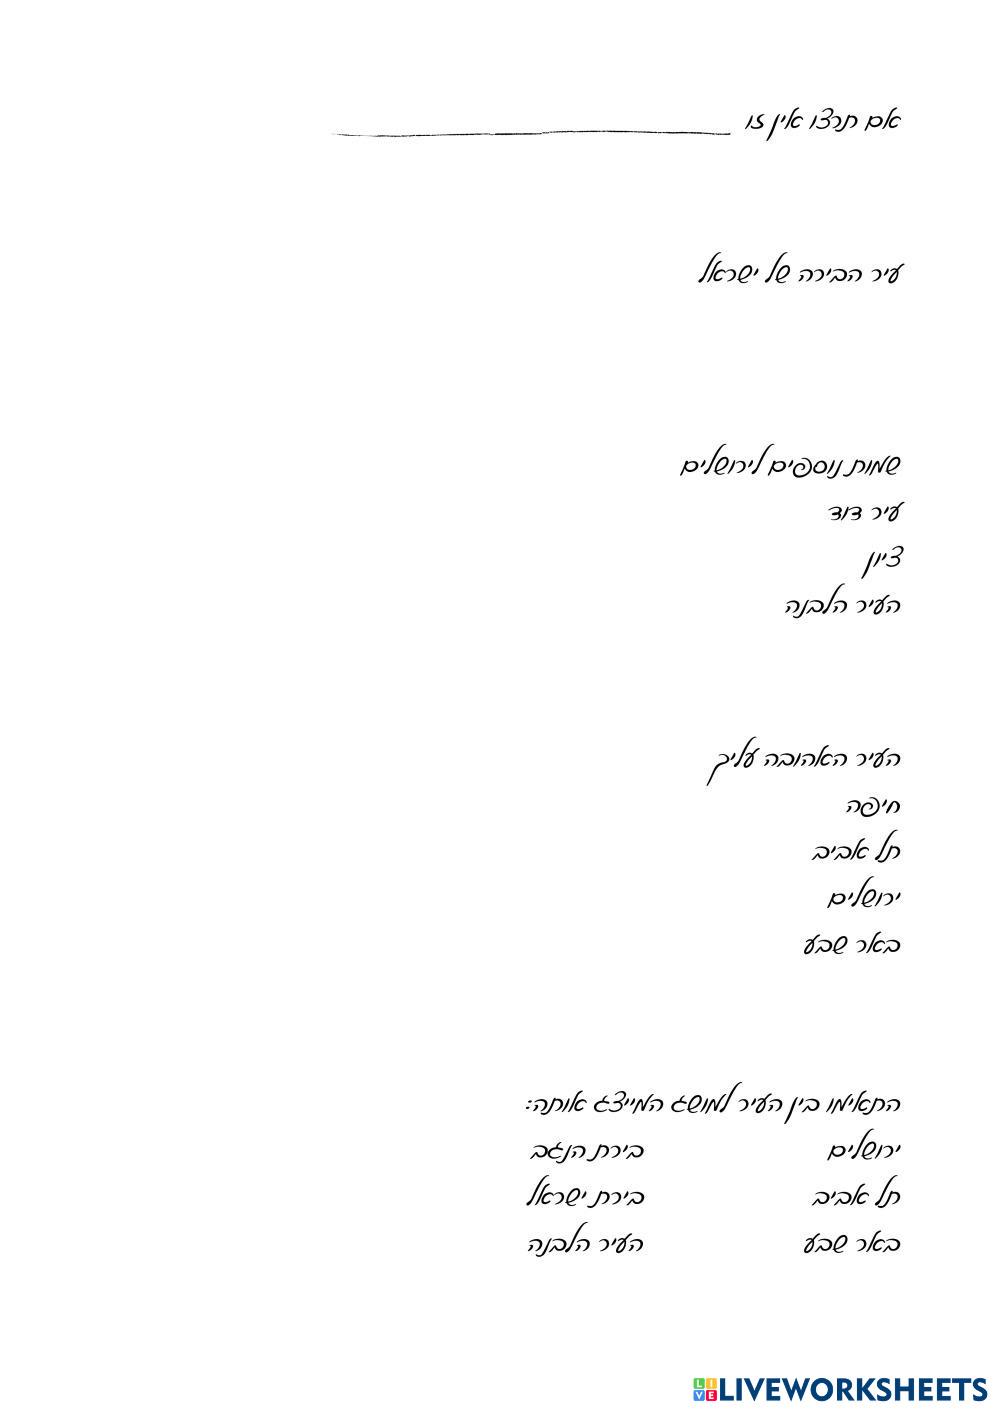 אם תרצו אין זו ________________
עיר הבירה של ישראל
שמות נוספים לירושלים
עיר דוד
ציון
העיר הלבנה
העיר האהובה עליך
חיפה
תל אביב
ירושלים
באר שבע
התאימו בין העיר למושג המייצג אותה:
ירושלים בירת הנגב
תל אביב בירת ישראל
באר שבע העיר הלבנה
LIVEWORKSHEETS